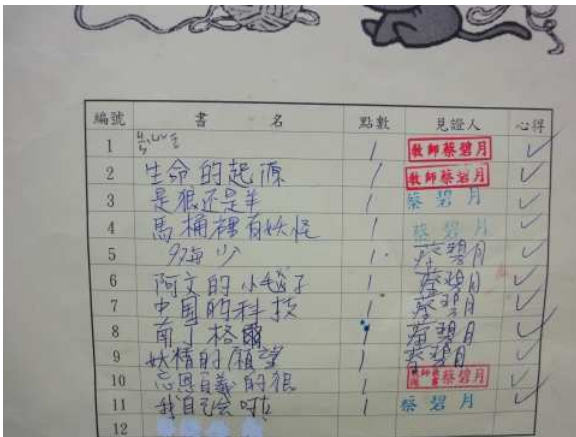 編號 書名 點數 見證人 心得
1 1 教師蔡碧月
2 生命的起源 1 教師蔡碧月
3 是狼还是羊 1 蔡碧月
4 馬桶裡有妖怪 1 蔡碧月
5 1 蔡碧月
6 阿文的小毯子 1 蔡碧月
7 中国的科技 1 蔡碧月
8 南丁格爾 1 蔡碧月
9 妖精的願望 1 蔡碧月
10 忘恩負義的狼 1 蔡碧月
11 我自己会 1 蔡碧月
12